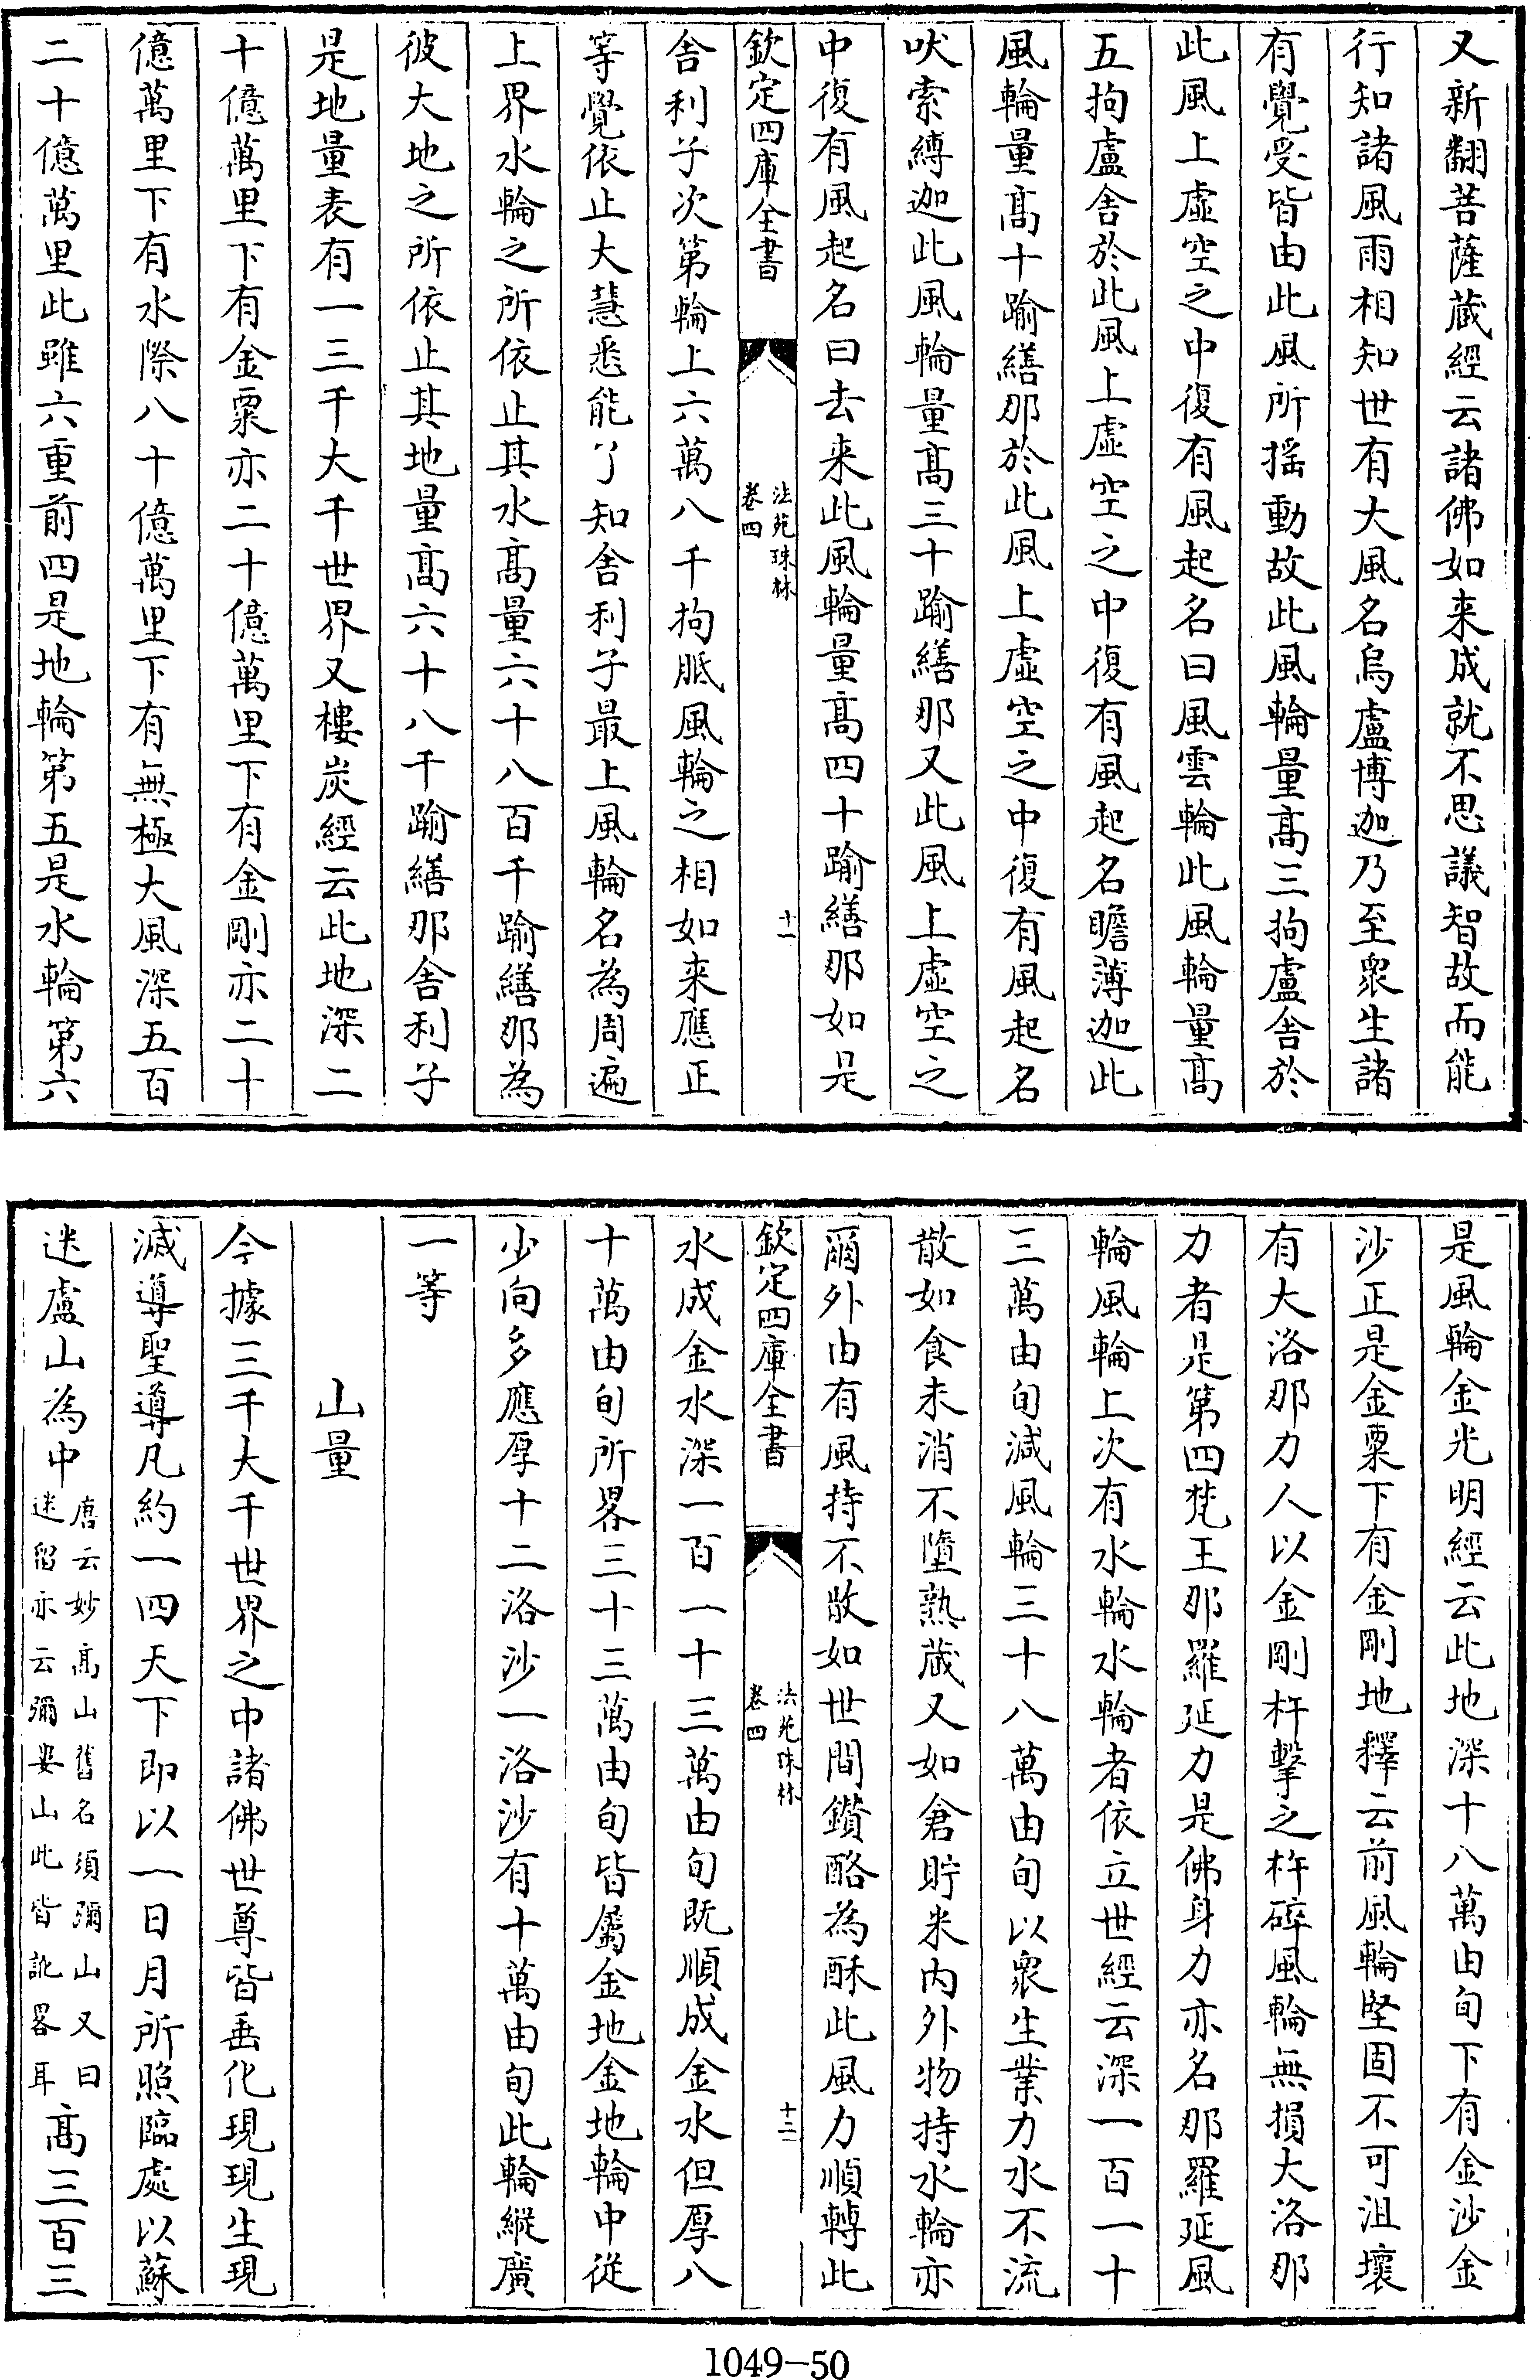 又新翻菩薩蔵經云諸佛如来成就不思議智故而能
行知諸風雨相知世有大風名烏盧博迦乃至衆生諸
有覺受皆由此風所揺動故此風輪量髙三拘盧舎於
此風上虚空之中復有風起名曰風雲輪此風輪量髙
五拘盧舎於此風上虚空之中復有風起名瞻薄迦此
風輪量髙十踰繕那於此風上虚空之中復有風起名
吠索縛迦此風輪量髙三十踰繕那又此風上虚空之
中復有風起名曰去来此風輪量髙四十踰繕那如是
欽定四庫全書
法苑珠林
卷四
十一
舎利子次第輪上六萬八千拘胝風輪之相如来應正
等覺依止大慧悉能了知舎利子最上風輪名為周遍
上界水輪之所依止其水髙量六十八百千踰繕那為
彼大地之所依止其地量髙六十八千踰繕那舎利子
是地量表有一三千大千世界又樓炭經云此地深二
十億萬里下有金粟亦二十億萬里下有金剛亦二十
億萬里下有水際八十億萬里下有無極大風深五百
二十億萬里此雖六重前四是地輪第五是水輪第六
是風輪金光明經云此地深十八萬由旬下有金沙金
沙正是金粟下有金剛地釋云前風輪堅固不可沮壞
有大洛那力人以金剛杵擊之杵碎風輪無損大洛那
力者是第四梵王那羅延力是佛身力亦名那羅延風
輪風輪上次有水輪水輪者依立世經云深一百一十
三萬由旬減風輪三十八萬由旬以衆生業力水不流
散如食未消不墮熟蔵又如倉貯米内外物持水輪亦
爾外由有風持不散如世間鑽酪為酥此風力順轉此
欽定四庫全書
法苑珠林
卷四
十二
水成金水深一百一十三萬由旬既順成金水但厚八
十萬由旬所畧三十三萬由旬皆屬金地金地輪中從
少向多應厚十二洛沙一洛沙有十萬由旬此輪縱廣
一等
山量
今據三千大千世界之中諸佛世尊皆垂化現現生現
滅導聖導凡約一四天下即以一日月所照臨處以蘇
迷盧山為中唐云妙髙山舊名須彌山又曰迷留亦云彌婁山此皆訛畧耳髙三百三
1049-50